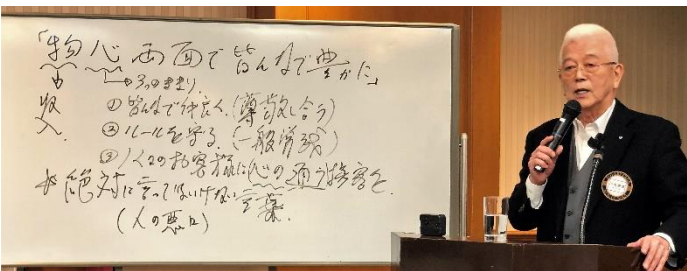 「物心両面で皆んなで豊かに」
収入
3つのきまり
①皆んなで仲良く(尊敬し合う)
②ルールを守る(一般常識)
③人々のお客様に心の通う接客を。
絶対に言ってはいけない言葉。
(人の悪口)